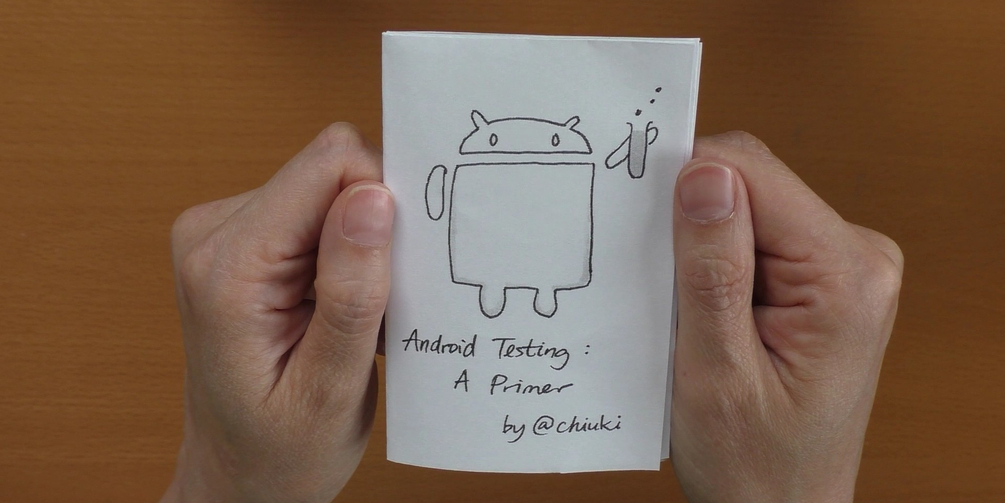 Android Testing :
A Primer
by @chiuki